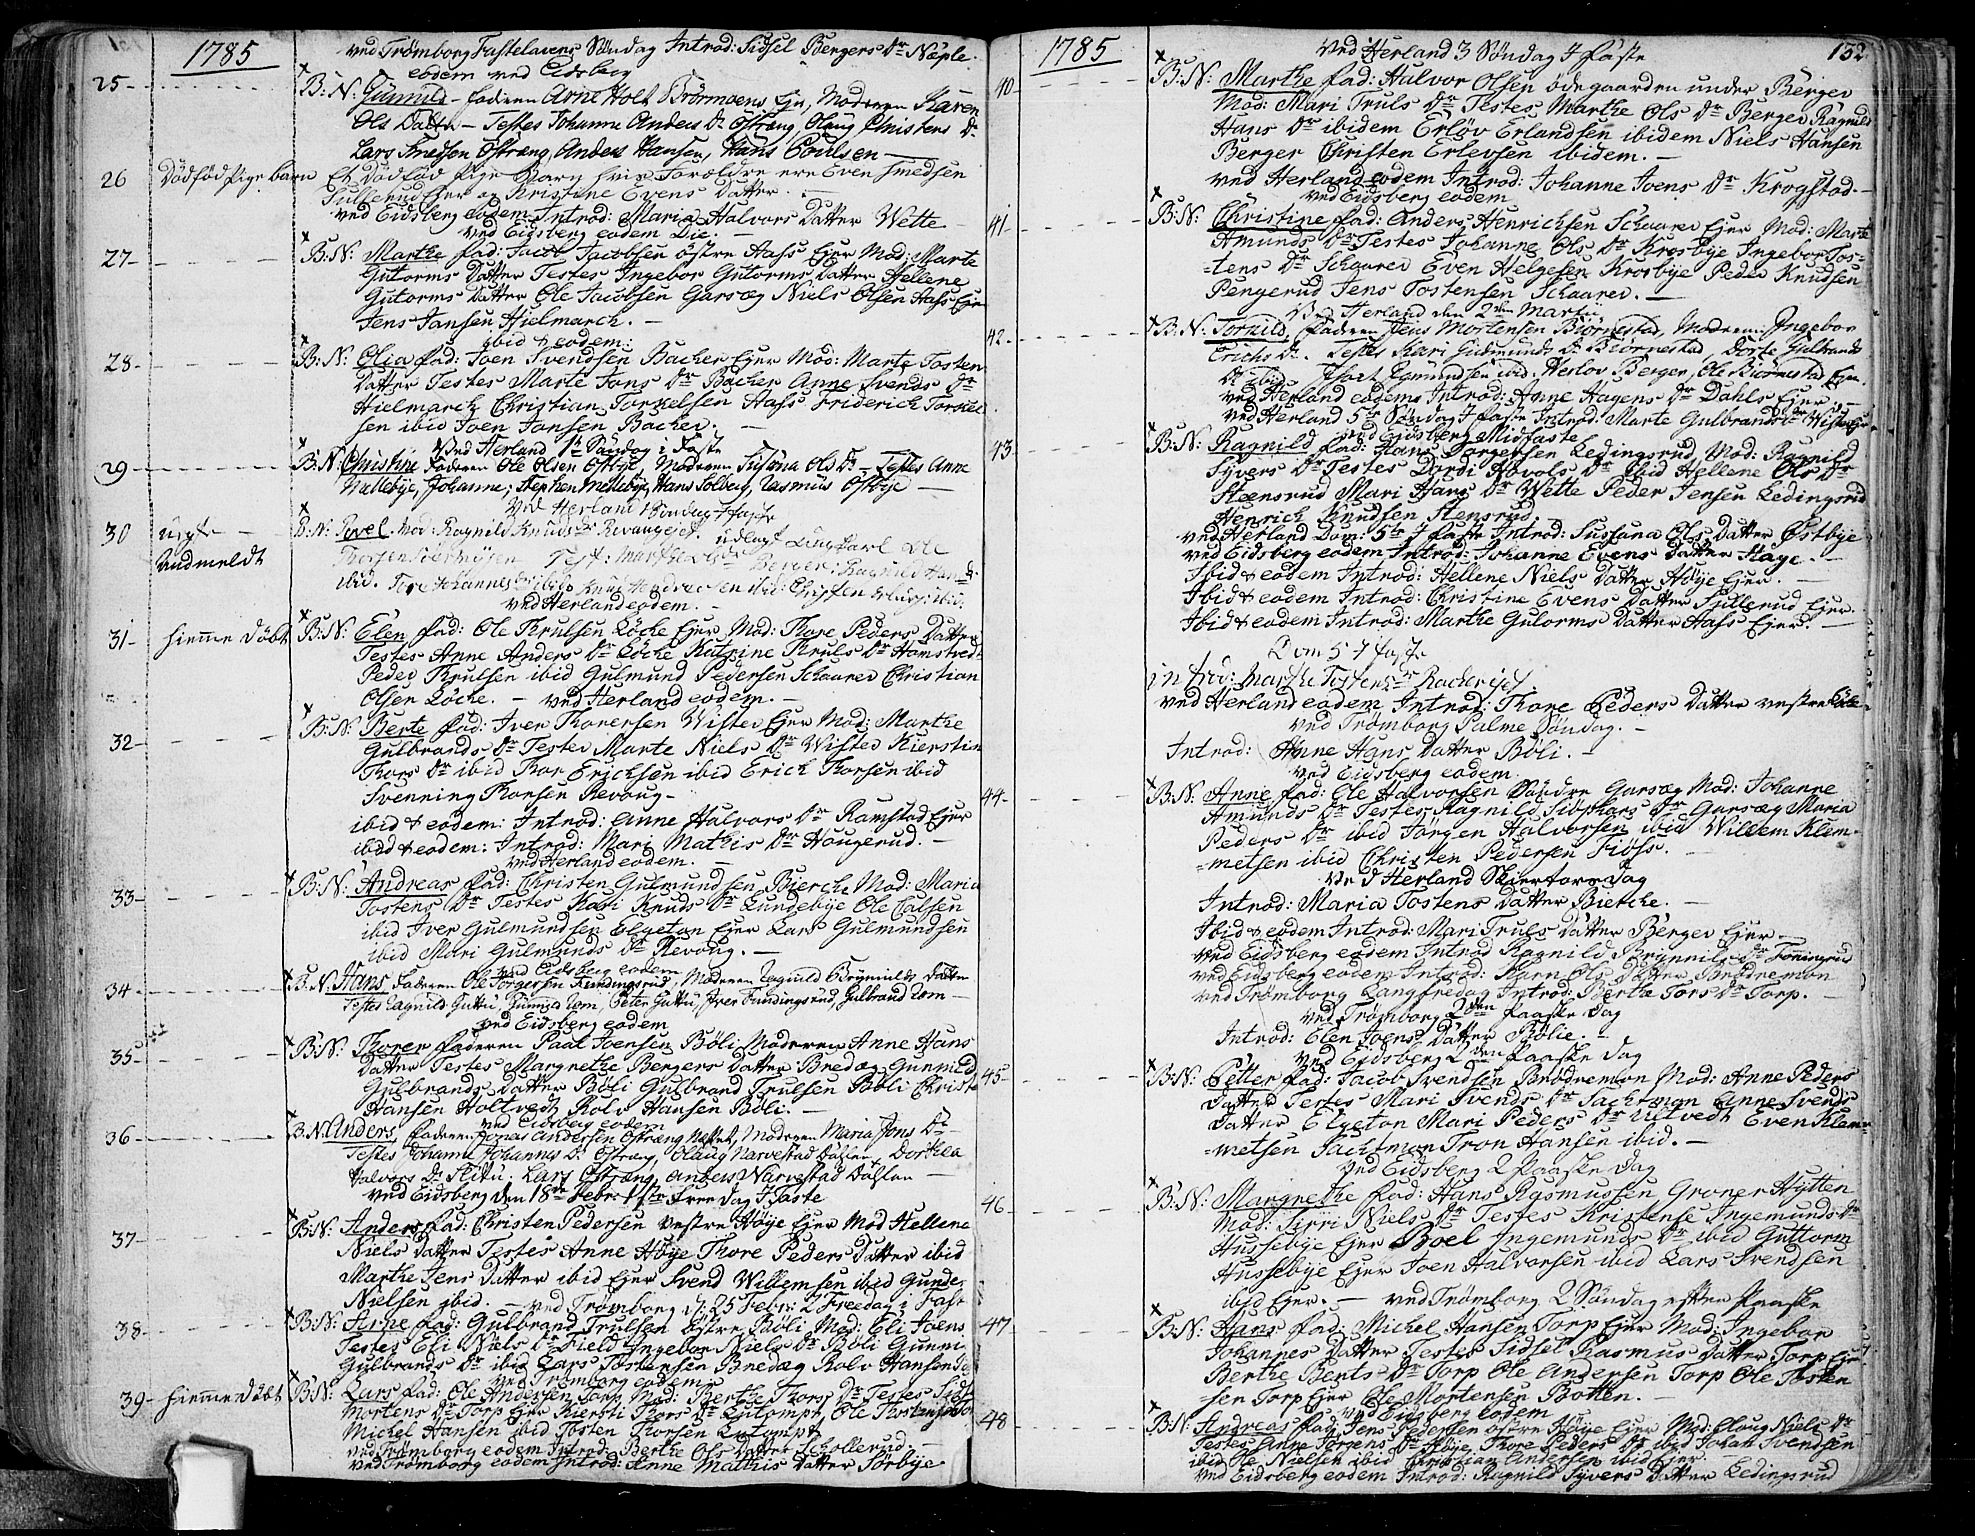 1785
ved Trømborg Fastelavens Søndag Introd: Sidsel Bergers Dr Næple.
eodem ved Eidsberg
25 B: N: Gunnild - faderen Arne Holt Brørmoens Ejer, Moderen Karen
Ols Datter - Testes Johanne Anders Dr Østræng, Olaug Christens Dr
Lars Smedsen Østræng, Anders Hansen, Hans Poulsen
26 Dödföd Pige barn Et Dödfød Pige Barn hvis Forældre ere Even Smedsen
Sullerud Ejer og Kristine Evens Datter. -
ved Eidsberg eodem Introd: Maria Halvors Datter Wette
ved Eidsberg eodem Die. -
27 B: N: Marthe fad: Jacob Jacobsen östre Hafs Ejer Mod: Marte
Gutorms Datter Testes Ingebor Gutorms Datter Hellene
Gutorms Datter Ole Jacobsen Garsæg Niels Olsen Hafs Ejer
Jens Jansen Hielmarch. -
ibid & eodem:
28 B: N: Olia fad: Joen Svendsen Bacher Ejer Mod: Marte Tosten
Datter Testes Marte Jons Dr Bacher Anne Svends Dr
Hielmarck Christian Torkelsen Hafs Friderich Torkel
sen ibid Joen Jansen Bacher. -
Ved Herland 1te Søndag i Faste
29 B: N: Christine Faderen Ole Olsen Østbye, Moderen Susana Ols Dr - Testes Anne
Mellebye, Johanne; Stephen Mellebye, Hans Solberg, Rasmus Østbye
Ved Herland 1 Söndag i faste
30 uegte Andmeldt B: N: Povel. Mod: Ragnild Knuds Dr Revougejet. udlagt Ole
ibid. Tore Johannes Dr ibid Knud
ved Herland eodem. -
31 hieme Döbt B: N: Elen fad: Ole Trulsen Löche Ejer Mod: Thore Peders Datter
Testes Anne Anders Dr Löche Katrine Truls Dr Homstvedt
Peder Trulsen ibid Gulmund Pedersen Schaarer Christian
Olsen Löche. - ved Herland eodem. -
32 B: N: Berte fad: Iver Thorersen Wister Ejer Mod: Marthe
Gulbrands Dr Testes Marte Niels Dr Wister Kierstin
Thors Dr ibid Thor Erichsen ibid Erich Thorsen ibid
Svenning Thorsen Revoug -
ibid & eodem: Introd: Anne Halvors Dr Ramstad Ejer
ibid & eodem: Introd: Mari Mathis Dr Hougerud. -
ved Herland eodem. -
33 B: N: Andreas fad: Christen Gulmundsen Bierche Mod: Maria
Tostens Dr Testes Kari Knuds Dr Lundebye Ole Colsen
ibid Iver Gulmundsen Elgeton Ejer Lars Gulmundsen
ibid Mari Gulmunds Dr Revoug. -
ved Eidsberg eodem
34 B: N. Hans Faderen Ole Torgersen Kindingsrud, Moderen Ragnild Brynnilds Datter
Testes Ragnild Guttu, Gunnild Lom, Peter Guttu, Iver Fundingsrud, Gulbrand Lom -
ved Eidsberg eodem
35 B: N: Thorer faderen Paal Joensen Böli Moderen Anne Hans
Datter Testes Margrethe Bergers Datter Bredæg Gunnild
Gulbrands Datter Böli Gulbrand Trulsen Böli Christe
Hansen Holtvedt Rolv Hansen Böli. -
ved Eidsberg eodem
36 B. N. Anders, faderen Jonas Andersen Østræng Nettet, Moderen Maria Jons Dr
Testes Johanne Johannes Dr Østræng, Olaug Narvestad Dahlen, Dorthea
Halvors Dr Slittu, Lars Østræng, Anders Narvestad Dahlen -
ved Eidsberg den 18de Febr: 1ste Free Dag i Faste
37 B: N: Anders fad: Christen Pedersen vestre Höye Ejer Mod Hellene
Niels Datter Testes Anne Höye Thore Peders Datter ibid
Marthe Jens Datter ibid Ejer Svend Willemsen ibid Gunder
Nielsen ibid. - ved Trømborg d: 25 Febr: 2 Freedag i Fast
38 B: N: Arne fad: Gulbrand Trulsen östre Böli Mod: Eli Joens
Testes Eli Niels Dr Field Ingebor Niels Dr Böli Gunni
Gulbrands Dr ibid Lars Tostensen Bredæg Rolv Hansen
ved Trømborg eodem
39 hieme Döbt B: N: Lars fad: Ole Andersen Torp Mod: Berthe Thors Dr Testes Sids
Mortens Dr Torp Ejer Kiersti Thors Dr Lutompt, Ole Tostensen Tor
Michel Hansen ibid Tosten Thorsen Lutompt
ved Trømborg eodem Introd: Berthe Ols Datter Schollerud. -
ved Trømborg eodem Introd: Anne Mathis Datter Torbye
1785
132
ved Herland 3 Söndag i faste
40 B: N: Marthe fad: Halvor Olsen ödegaarden under Berger
Mod: Mari Truls Dr Testes Marthe Ols Dr Berger Ragnild
Hans Dr ibidem Erlöv Erlandsen ibidem Niels Hansen
Berger Christen Erlevsen ibidem. -
ved Herland eodem Introd: Johanne Joens Dr Krogstad. -
ved Eidsberg eodem
41 B: N: Christine fad: Anders Henrichsen Schaarer Ejer Mod: Marte
Amunds Dr Testes Johanne Ols Dr Krosbye Ingebor Tos=
=tens Dr Schaarer Even Helgesen Krosbye Peder Knudsen
Pengerud Jens Tostensen Schaarer. -
Ved Herland den 2den Martii
42 B: N: Tornild, faderen Jens Mortensen Biørnestad, Moderen Ingebor
Erichs Dr. Testes Kari Gudmunds Dr Biørnestad, Dorte Gulbrands
Dr ibid Egmundsen ibid. Neslov Berger, Ole Biørnestad Ejer.
ved Herland eodem Introd: Anne Hagens Dr Dahls Ejer. -
ved Herland 5te Söndag i faste Introd. Marte Gulbrands Dr Wister Ejer
ved Eidsberg Midfaste
43 B: N: Ragnild fad: Hans Torgersen Ledingsrud, Mod: Ragnild
Syvers Dr Testes Dordi Hovols Dr ibid Hellene Ols Dr
Steensrud Mari Hans Dr Wette Peder Jensen Ledingsrud
Henrich Knudsen Stensrud.
ved Herland Dom: 5te i faste Introd: Susana Ols Datter Østbye
ved Eidsberg eodem Introd: Johanne Evens Datter Haye. -
Ibid & eodem Introd: Hellene Niels Datter Höye Ejer. -
Ibid & eodem Introd: Christine Evens Datter Sullerud Ejer.
Ibid & eodem Introd: Marthe Gutorms Datter Hafs Ejer. -
Dom 5 i faste
introd: Marthe Tostens Dr Bacher ejet
ved Herland eodem Introd: Thore Peders Datter vestre Löche
ved Trømborg Palme Söndag. -
Introd: Anne Hans Datter Böli. -
ved Eidsberg eodem
44 B: N: Anne fad: Ole Halvorsen Söndre Garsæg Mod: Johanne
Amunds Dr Testes Ragnild Sidskars Dr Garsæg Maria
Peders Dr ibid Jörgen Halvorsen ibid Willem Klem=
=metsen ibid Christen Pedersen Fiöss. -
Ved Herland Skiertorsdag
Introd: Maria Tostens Datter Bierche. -
Ibid & eodem Introd: Mari Truls Datter Berger Ejer. -
ved Eidsberg eodem Introd Ragnild Brynnils Dr Foningsrud
ved Eidsberg eodem Introd: Karn Ols Datter Brödremon
ved Trømborg Langfredag Introd: Berthe Tors Dr Torp. -
ved Trømborg 2den Paaske Dag
Introd: Elen Joens Datter Bölie. -
ved Eidsberg 2den Paaske Dag
45 B: N: Petter fad: Jacob Svendsen Brödremon Mod: Anne Peders
Datter Testes Mari Svends Dr Tachtmon Anne Svends
Datter Elgeton Mari Peders Dr Ultvedt Even Klem=
=metsen Tachtmon Tron Hansen ibid. -
ved Eidsberg 2 Paaske Dag
46 B: N: Margrethe fad: Hans Rasmussen Groner Hytten
Mod: Sirri Niels Dr Testes Kristense Ingemunds Dr
Hussebye Ejer Boel Ingemunds Dr ibid Guttorm
Hussebye Ejer Joen Halvorsen ibid Lars Svendsen
ibid Ejer. - ved Trømborg 2 Söndag efter Paaske
47 B: N: Hans fad: Michel Hansen Torp Ejer Mod: Ingebor
Johannes Datter Testes Sidsel Rasmus Datter Torp Ejer
Berthe Bents Dr Torp Ole Andersen Torp Ole Tosten
sen Torp Ejer Ole Mortensen Botten. -
ved Eidsberg eodem
48 B: N: Andreas fad: Jens Pedersen östre Höye Ejer Mod: Olaug Niels Dr
Testes Anne Jörgens Dr Höye, Thore Peders Dr ibid Johan Svendsen
ibid Ole Nielsen ibid Christian Andersen ibid Ejer. -
ved Eidsberg eodem Introd: Ragnild Syvers Datter Ledingsrud